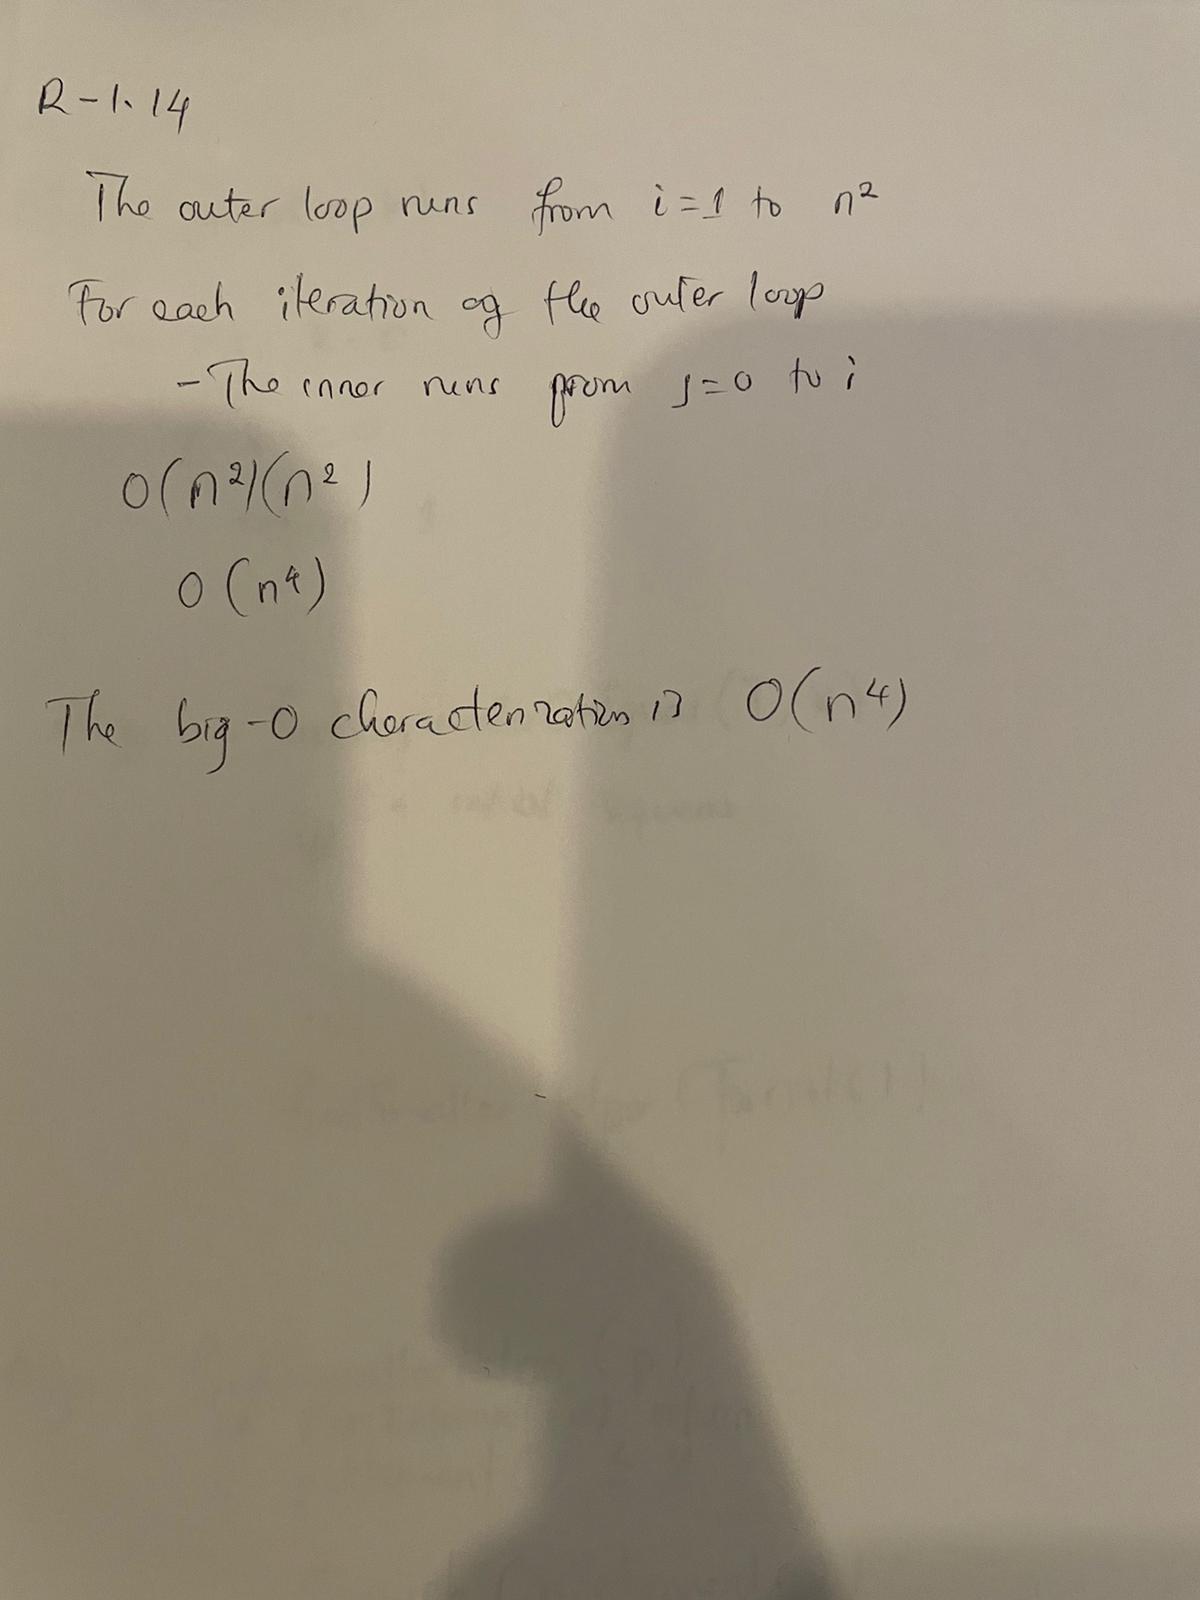 R-1.14
The outer loop runs from i=1 to n²
For each iteration of the outer loop
- The inner runs from j=0 to i
O(n²)(n²)
O(n⁴)
The big-O characterization is O(n⁴)